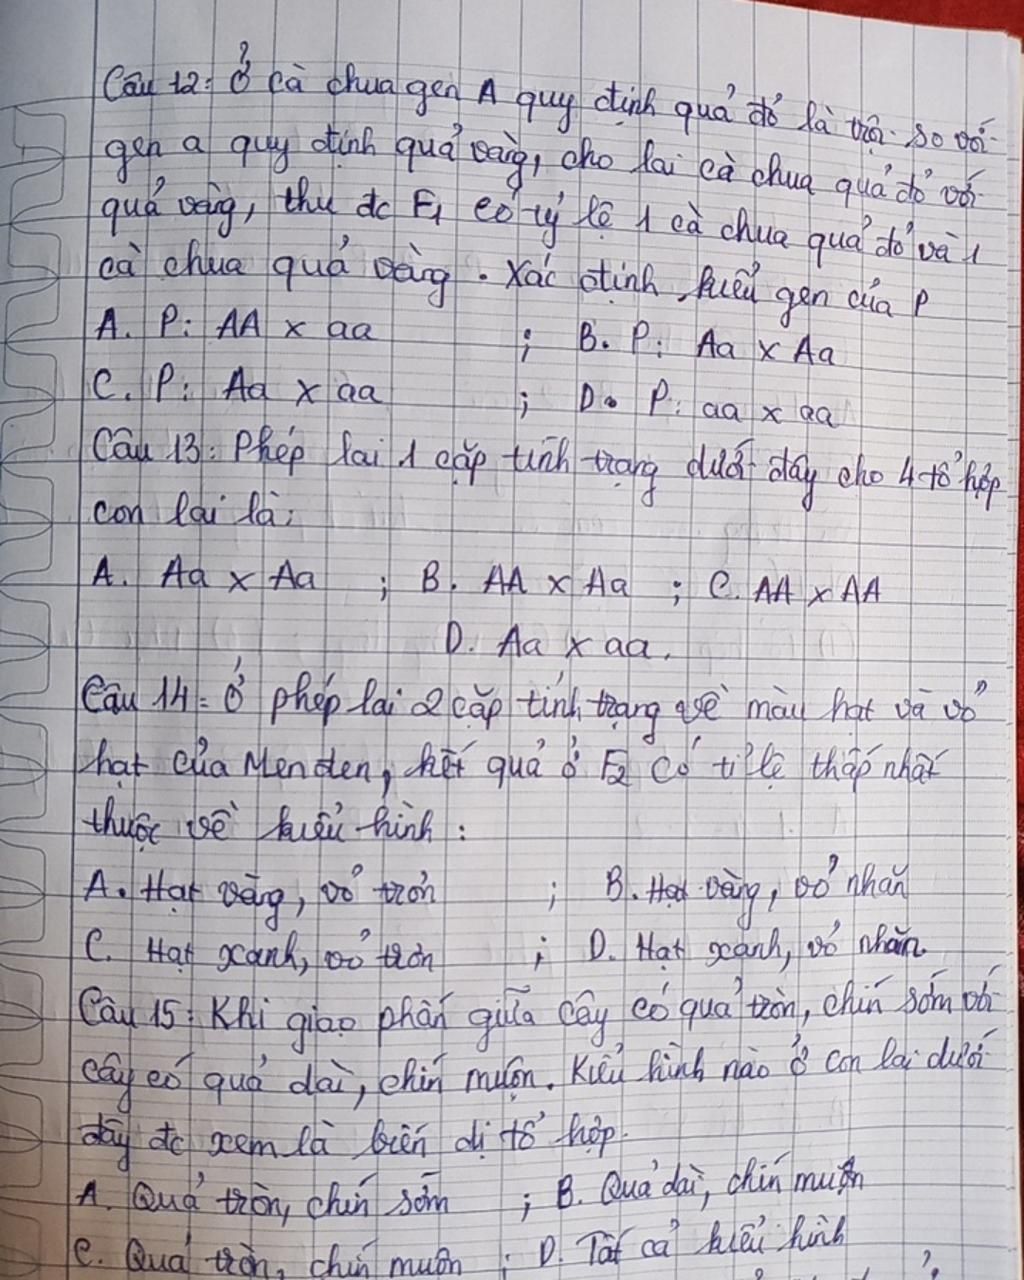 Câu 12: Ở cà chua gen A quy định quả đỏ là trội so với
gen a quy định quả vàng, cho lai cà chua quả đỏ với
quả vàng, thu đc F1 có tỷ lệ 1 cà chua quả đỏ và 1
cà chua quả vàng. Xác định kiểu gen của P
A. P: AA x aa ; B. P: Aa x Aa
C. P: Aa x aa ; D. P: aa x aa
Câu 13: Phép lai 1 cặp tính trạng dưới đây cho 4 tổ hợp
con lai là:
A. Aa x Aa ; B. AA x Aa ; C. AA x AA
D. Aa x aa.
Câu 14: Ở phép lai 2 cặp tính trạng về màu hạt và vỏ
hạt của Menđen, kết quả ở F2 có tỉ lệ thấp nhất
thuộc về kiểu hình:
A. Hạt vàng, vỏ trơn ; B. Hạt vàng, vỏ nhăn
C. Hạt xanh, vỏ trơn ; D. Hạt xanh, vỏ nhăn.
Câu 15: Khi giao phấn giữa cây có quả tròn, chín sớm với
cây có quả dài, chín muộn. Kiểu hình nào ở con lai dưới
đây đc xem là biến dị tổ hợp.
A. Quả tròn, chín sớm ; B. Quả dài, chín muộn
C. Quả tròn, chín muộn ; D. Tất cả kiểu hình